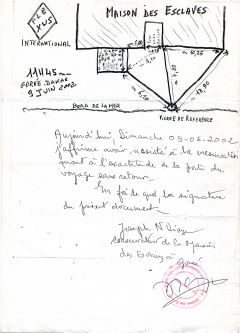 FLE
XUS
MAISON DES ESCLAVES
INTERNATIONAL
11H45
GOREE DAKAR
9 JUIN 2002
10,25
BORD DE LA MER
PIERRE DE REFERENCE
Aujourd'hui, Dimanche 09-06-2002
j'affirme avoir assisté à la
quant à l'exactitude de la porte du
voyage sans retour.
En foi de quoi, la signature
du présent document
Joseph N'Diaye
Conservateur de la Maison
des Esclaves à Gorée